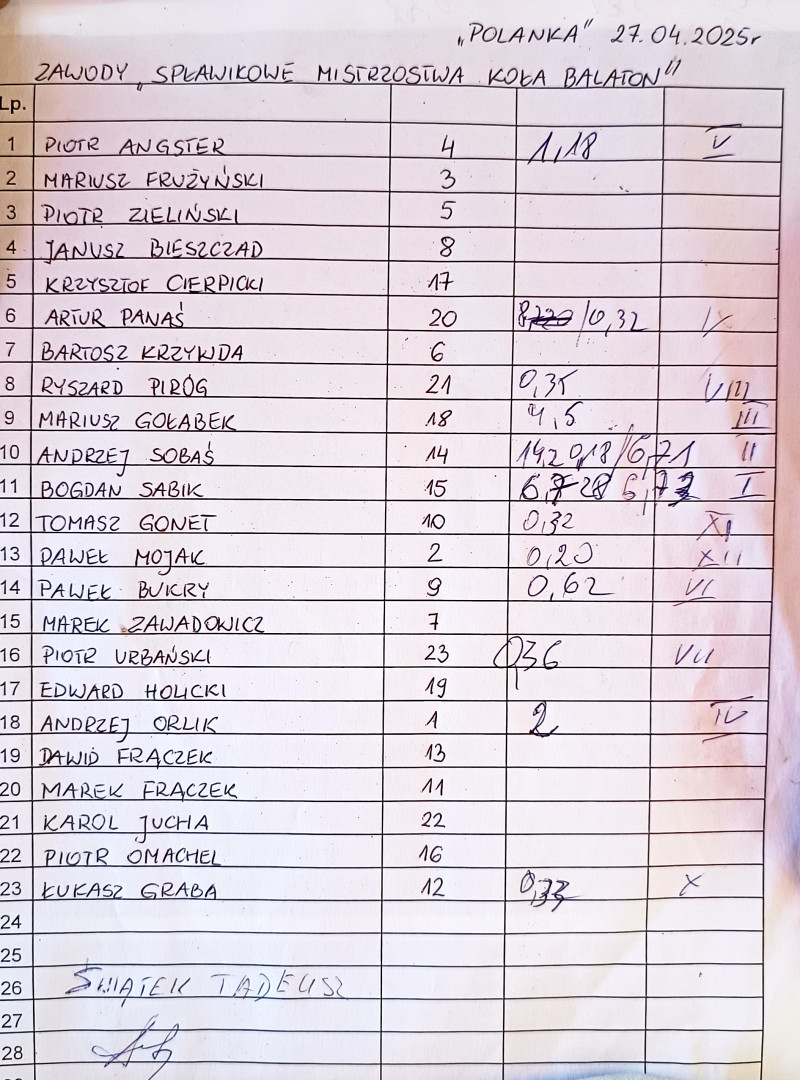 „POLANKA" 27.04.2025r
ZAWODY „SPŁAWIKOWE MISTRZOSTWA KOŁA BALATON"
Lp.
1 PIOTR ANGSTER 4 1,18 V
2 MARIUSZ FRUŻYŃSKI 3
3 PIOTR ZIELIŃSKI 5
4 JANUSZ BIESZCZAD 8
5 KRZYSZTOF CIERPICKI 17
6 ARTUR PANAŚ 20 /0,32 IX
7 BARTOSZ KRZYWDA 6
8 RYSZARD PIRÓG 21 0,35 VIII
9 MARIUSZ GOŁABEK 18 4,5 III
10 ANDRZEJ SOBAŚ 14 /6,71 II
11 BOGDAN SABIK 15 I
12 TOMASZ GONET 10 0,32 XI
13 PAWEŁ MOJAK 2 0,20 XII
14 PAWEŁ BUKRY 9 0,62 VI
15 MAREK ZAWADOWICZ 7
16 PIOTR URBAŃSKI 23 0,36 VII
17 EDWARD HOLICKI 19
18 ANDRZEJ ORLIK 1 2 IV
19 DAWID FRĄCZEK 13
20 MAREK FRĄCZEK 11
21 KAROL JUCHA 22
22 PIOTR OMACHEL 16
23 ŁUKASZ GRABA 12 0,33 X
24
25
26 ŚWIĄTEK TADEUSZ
27
28